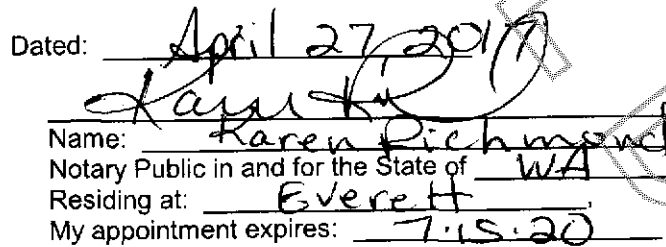 Dated: April 27 2017
Name: Karen Richmond
Notary Public in and for the State of WA
Residing at: Everett,
My appointment expires: 7.15.20